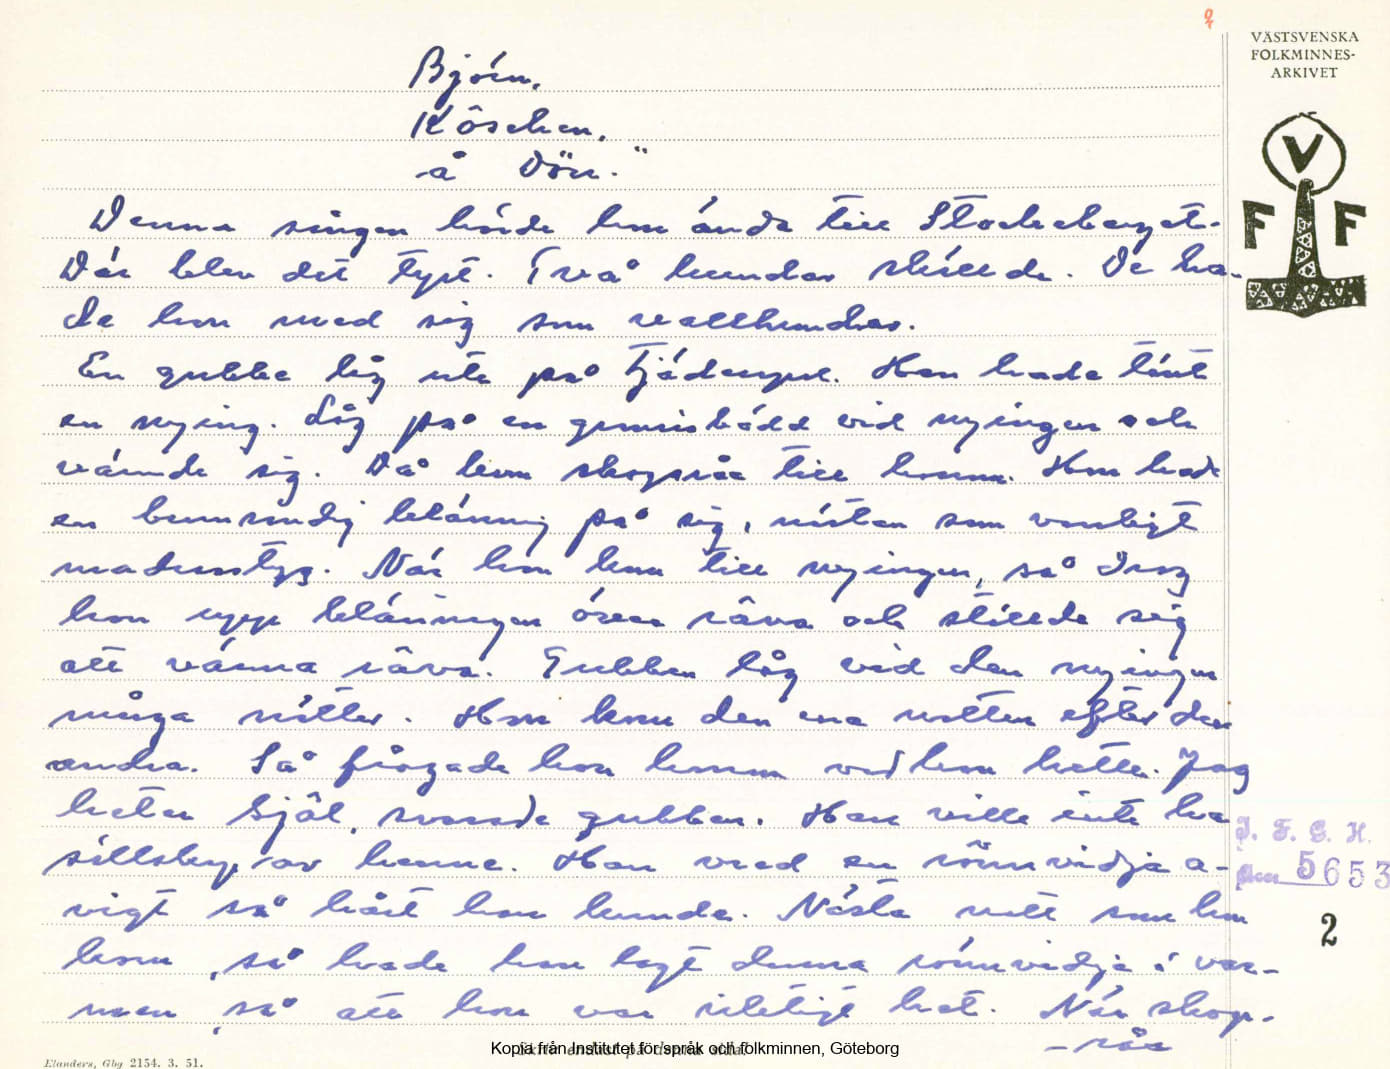 2
VÄSTSVENSKA
FOLKMINNES-
ARKIVET
V
F F
Björn,
Köschen,
å Dörr."
Denna sången hörde hon ända till Stockeberget.
Där blev det tyst. Två hundar skällde. De ha-
de hon med sig som vallhundar.
En gubbe låg ute på Tjäderspel. Han hade tänt
en nying. Låg på en granrisbädd vid nyingen och
värmde sig. Då kom skogsråa till honom. Hon hade
en besynnerlig klänning på sig, nästan som vanligt
madrasstyg. När hon kom till nyingen, så drog
hon upp klänningen över röva och ställde sig
att värma röva. Gubben låg vid den nyingen
många nätter. Hon kom den ena natten efter den
andra. Så frågade hon honom vad han hette. Jag
heter Själ, svarade gubben. Han ville inte ha
sällskap av henne. Han vred en rönnvidja a-
vigt så hårt han kunde. Nästa natt som hon
kom, så hade han lagt denna rönnvidja i var-
men, så att hon var riktigt het. När skogs-
-råa
I. F. G. H.
5653
2
Kopia från Institutet för språk och folkminnen, Göteborg
Elanders, Gbg 2154. 3. 51.